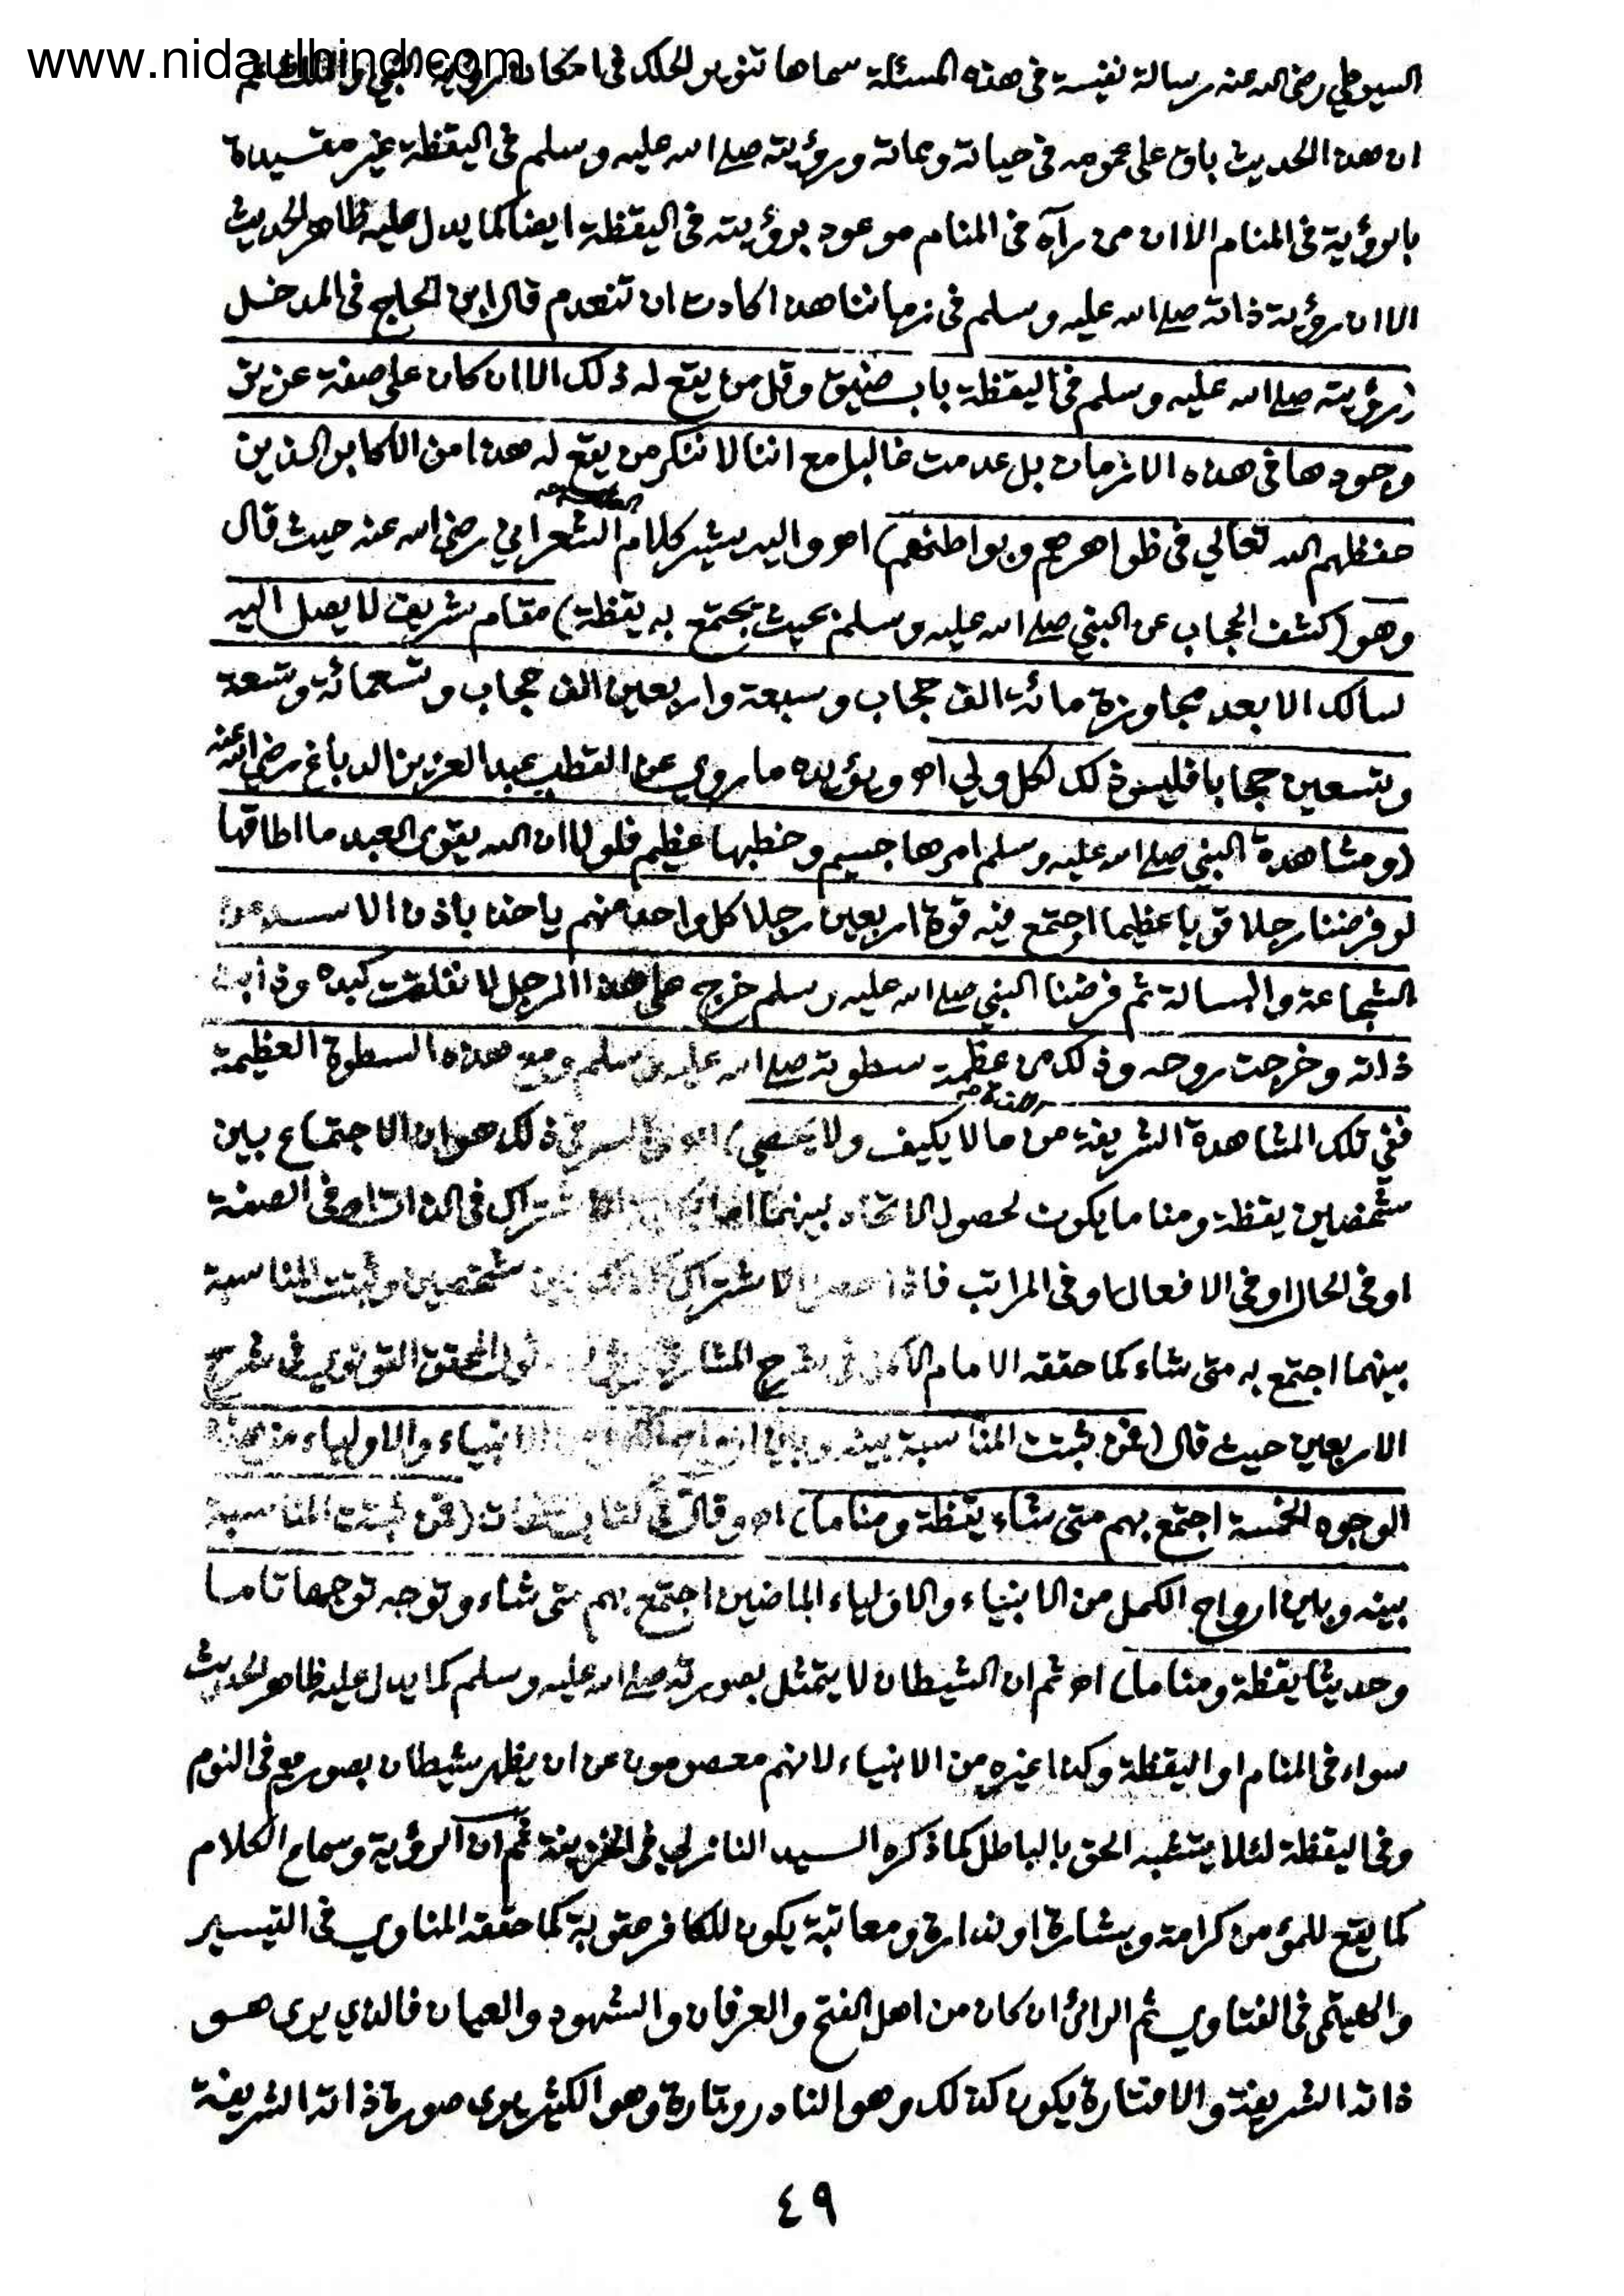 www.nidaulhind.com
السيوطي رضى الله عنه رسالة نفيسة فى هذه المسئلة سماها تنوير الحلك فى امكان رؤية النبي والملك ثم
ان هذا الحديث باق على عمومه فى حياته ومماته ورؤيته صلى الله عليه وسلم فى اليقظة غير مقسيدة
بالرؤية فى المنام الا ان من رآه فى المنام موعود برؤيته فى اليقظة ايضا كما يدل عليه ظاهر الحديث
الا ان رؤية ذاته صلى الله عليه وسلم فى زماننا هذا كادت ان تنعدم قال ابن الحاج فى المدخل
(رؤيته صلى الله عليه وسلم فى اليقظة باب ضيق وقل من يقع له ذلك الا ان كان على صفة عزيز
وجودها فى هذه الازمان بل عدمت غالبا مع اننا لا ننكر من يقع له هذا من الاكابر الذين
حفظهم الله تعالي فى ظواهرهم وبواطنهم) اه واليه يشير كلام الشعراني رضى الله عنه حيث قال
وهو (كشف الحجاب عن النبي صلى الله عليه وسلم بحيث يجتمع به يقظة) مقام شريف لا يصل اليه
سالك الا بعد مجاوزة مائة الف حجاب وسبعة واربعين الف حجاب وتسعمائة وتسعة
وتسعين حجابا فليس ذلك لكل ولي اه ويؤيده ما روي عن القطب عبد العزيز الدباغ رضى الله عنه
(ومشاهدة النبي صلى الله عليه وسلم امرها جسيم وخطبها عظيم فلولا ان الله يقوى العبد ما اطاقها
لو فرضنا رجلا قويا عظيما اجتمع فيه قوة اربعين رجلا كل واحد منهم ياخذ باذن الاسد من
الشجاعة والبسالة ثم فرضنا النبي صلى الله عليه وسلم خرج على هذا الرجل لانفلقت كبده وذابت
ذاته وخرجت روحه وذلك من عظمة سطوته صلى الله عليه وسلم ومع هذه السطوة العظيمة
ففي تلك المشاهدة الشريفة من ما لا يكيف ولا يحصي) اه والسر فى ذلك هو ان الاجتماع بين
شخصين يقظة ومناما يكون لحصول الاتحاد بينهما الاشتراك فى الذات او فى الصفة
او فى الحال او فى الافعال او فى المراتب فاذا حصل الاشتراك بين شخصين وثبتت المناسبة
بينهما اجتمع به متى شاء كما حققه الامام الاكمل فى شرح المشارق المحقق القونوي فى شرح
الاربعين حيث قال (فمن ثبتت المناسبة بينه وبين الانبياء والاولياء من هذه
الوجوه الخمسة اجتمع بهم متى شاء يقظة ومناما) اه وقال فى (فمن ثبتت المناسبة
بينه وبين ارواح الكمل من الانبياء والاولياء الماضين اجتمع بهم متى شاء وتوجه توجها تاما
وحديثا يقظة ومناما) اه ثم ان الشيطان لا يتمثل بصورته صلى الله عليه وسلم كما يدل عليه ظاهر الحديث
سواء فى المنام او اليقظة وكذا غيره من الانبياء لانهم معصومون عن ان يظهر شيطان بصورهم فى النوم
وفى اليقظة لئلا يتشبه الحق بالباطل كما ذكره السيد النازلي فى الخزينة ثم ان الرؤية وسماع الكلام
كما يقع للمؤمن كرامة وبشارة او نذارة ومعاتبة يكون للكافر عقوبة كما حققه المناوي فى التيسير
والهيتمى فى الفتاوي ثم الرائى ان كان من اهل الفتح والعرفان والشهود والعيان فالذي يرى هو
ذاته الشريفة والا فتارة يكون كذلك وهو النادر وتارة وهو الكثير يرى صورة ذاته الشريفة
٤٩